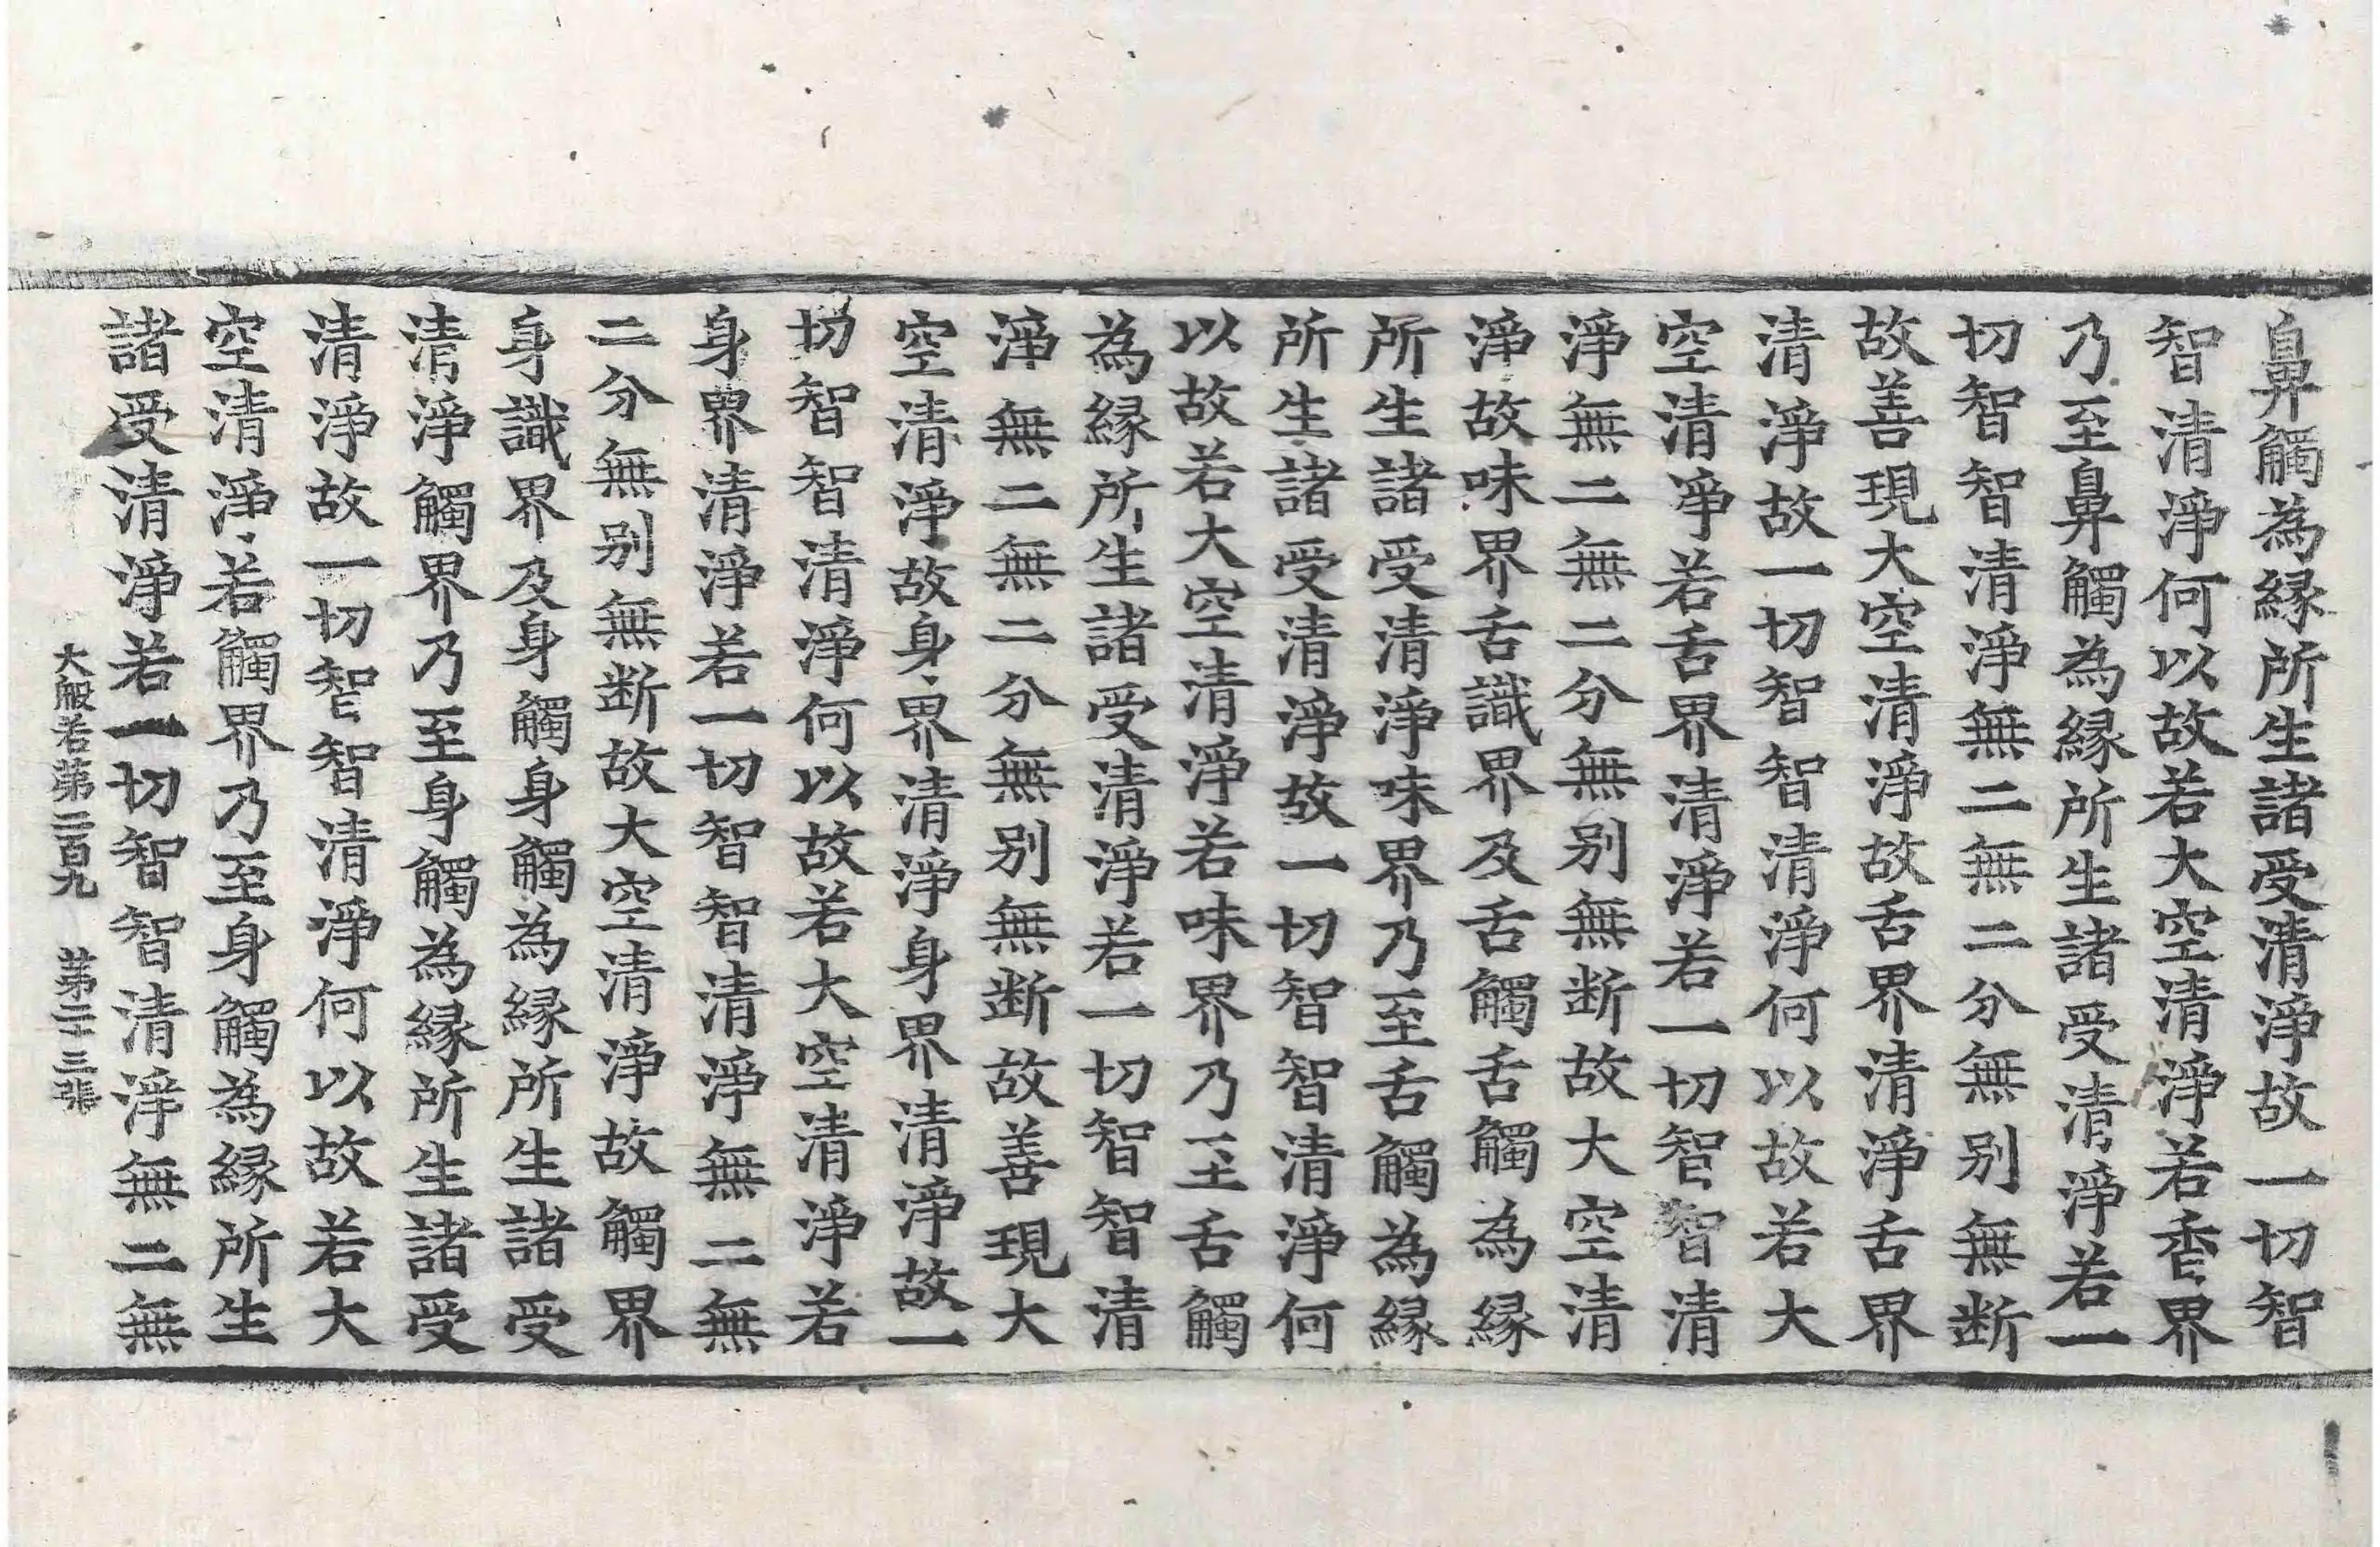 鼻觸為緣所生諸受清淨故一切智
智清淨何以故若大空清淨若香界
乃至鼻觸為緣所生諸受清淨若一
切智智清淨無二無二分無别無断
故善現大空清淨故舌界清淨舌界
清淨故一切智智清淨何以故若大
空清淨若舌界清淨若一切智智清
淨無二無二分無别無断故大空清
淨故味界舌識界及舌觸舌觸為緣
所生諸受清淨味界乃至舌觸為緣
所生諸受清淨故一切智智清淨何
以故若大空清淨若味界乃至舌觸
為緣所生諸受清淨若一切智智清
淨無二無二分無别無断故善現大
空清淨故身界清淨身界清淨故一
切智智清淨何以故若大空清淨若
身界清淨若一切智智清淨無二無
二分無别無断故大空清淨故觸界
身識界及身觸身觸為緣所生諸受
清淨觸界乃至身觸為緣所生諸受
清淨故一切智智清淨何以故若大
空清淨若觸界乃至身觸為緣所生
諸受清淨若一切智智清淨無二無
大般若第二百九 第二十三張